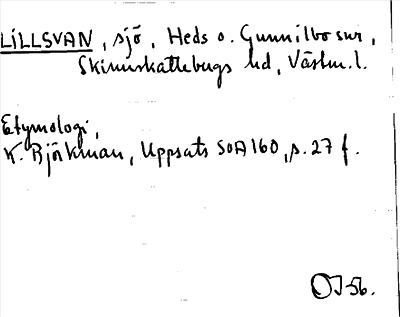 LILLSVAN, sjö, Heds o. Gunnilbo snr,
Skinnskattebergs hd, Västm. l.
Etymologi,
K. Björkman, Uppsats SOA 160, s. 27 f.
OJ-56.